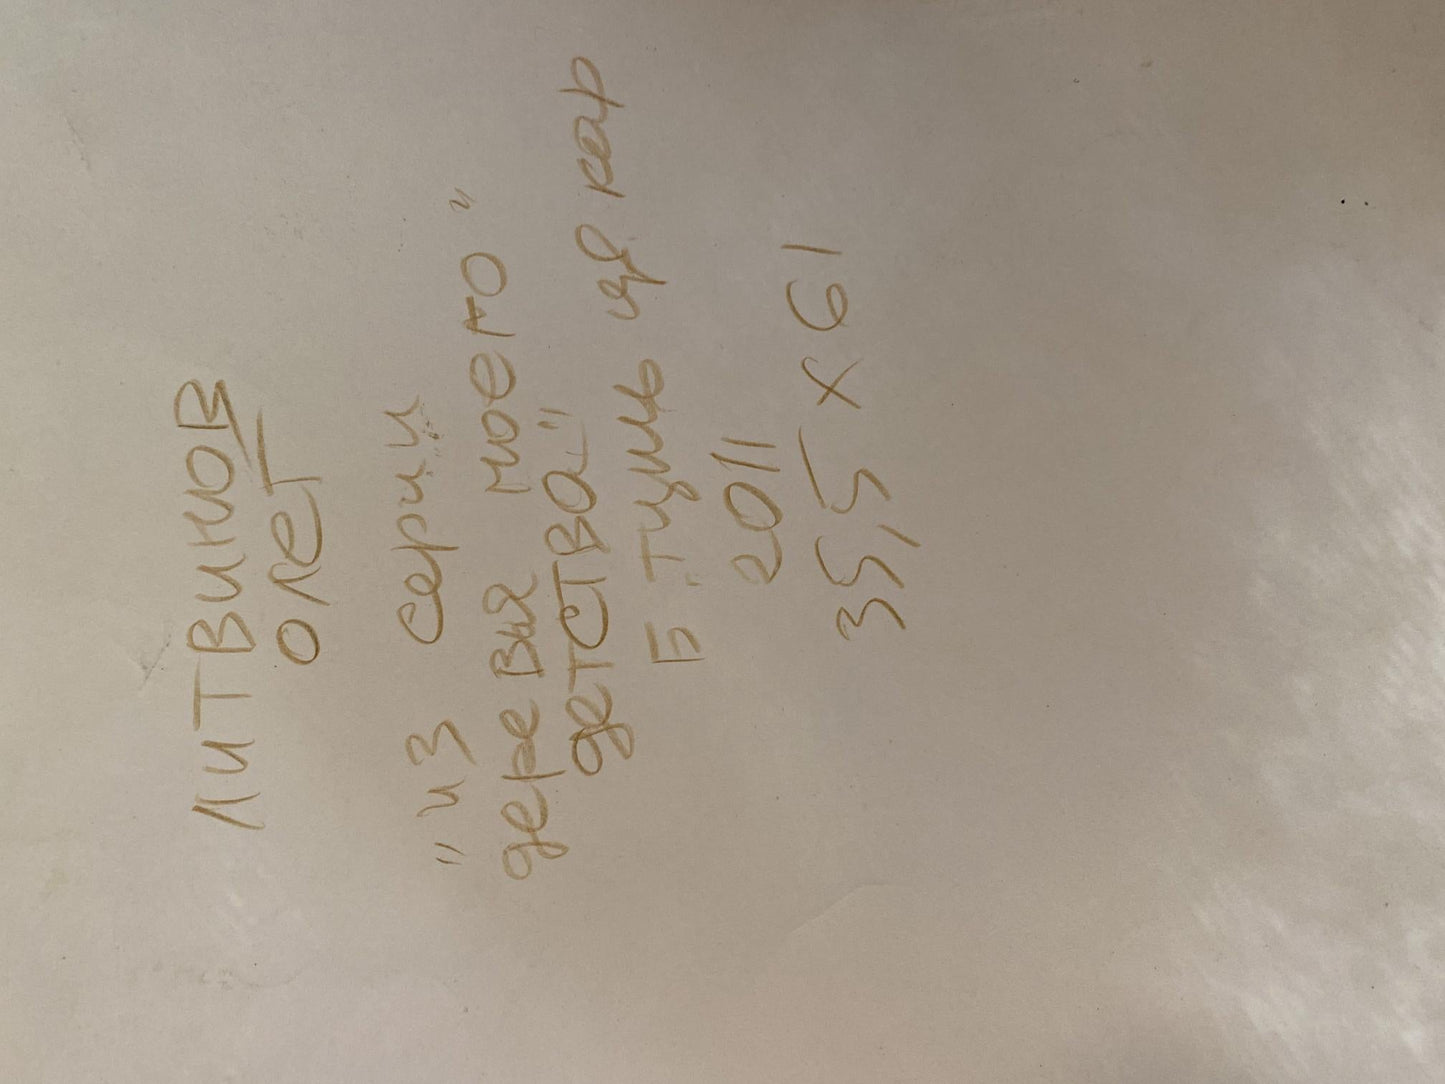 ЛИТВИНОВ
ОЛЕГ
"из серии
деревня моего"
детства"
Б. тушь цв кар
2011
35,5 х 61